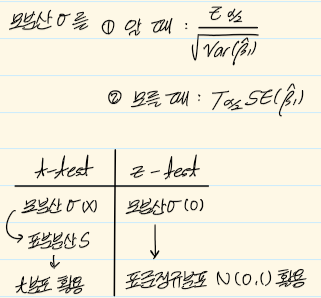 모분산 σ를 ① 알 때 : Z α/2 / √Var(β̂₁)
② 모를 때 : T α/2 SE(β̂₁)
t-test | z-test
모분산 σ(X) | 모분산 σ(O)
→ 표본분산 S ↓
↓
t분포 활용 | 표준정규분포 N(0,1) 활용